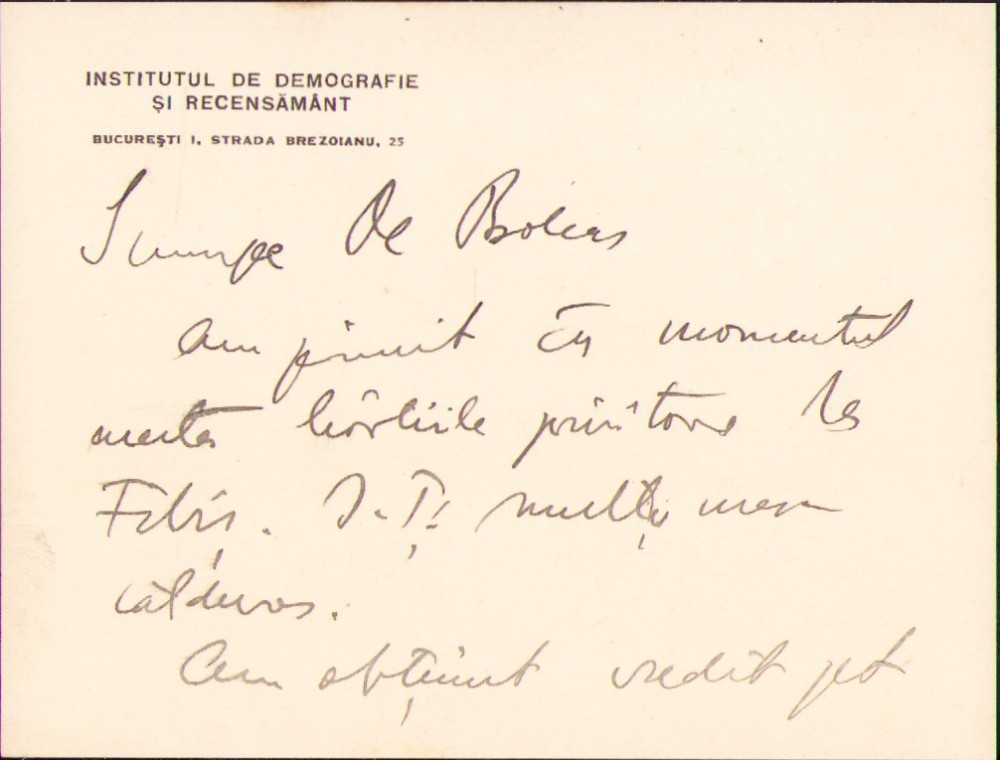 INSTITUTUL DE DEMOGRAFIE
ȘI RECENSĂMÂNT
BUCUREȘTI I, STRADA BREZOIANU, 25
Scumpe
Am primit în momentul
acesta hârtiile privitoare la
Feliș. D-Ți mulțumesc
călduros.
Am obținut credit pt